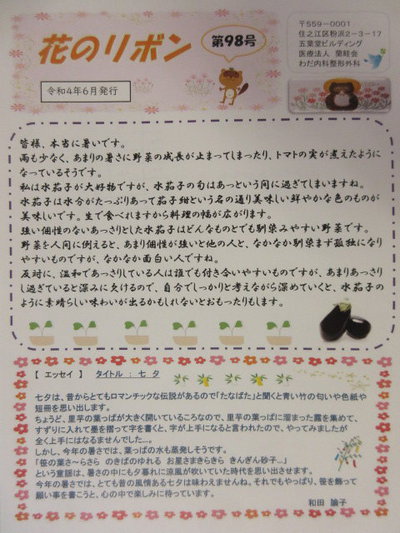 花のリボン
第98号
令和4年6月発行
〒559-0001
住之江区粉浜2-3-17
五葉堂ビルディング
医療法人 蘭畦会
わだ内科整形外科
皆様、本当に暑いです。
雨も少なく、あまりの暑さに野菜の成長が止まってしまったり、トマトの実が煮えたように
なっているそうです。
私は水茄子が大好物ですが、水茄子の旬はあっという間に過ぎてしまいますね。
水茄子は水分がたっぷりあって茄子紺という名の通り美味しい鮮やかな色のものが
美味しいです。生で食べれますから料理の幅が広がります。
強い個性のないあっさりとした水茄子はどんなものとでも馴染みやすい野菜です。
野菜を人間に例えると、あまり個性が強いと他の人と、なかなか馴染まず孤独になり
やすいものですが、なかなか面白い人ですね。
反対に、温和であっさりしている人は誰でも付き合いやすいものですが、あまりあっさり
し過ぎていると深みに欠けるので、自分でしっかりと考えながら深めていくと、水茄子の
ように素晴らしい味わいが出るかもしれないとおもったりもします。
【 エッセイ 】 タイトル : 七 夕
七夕は、昔からとてもロマンチックな伝説があるので「たなばた」と聞くと青い竹の匂いや色紙や
短冊を思い出します。
ちょうど、里芋の葉っぱが大きく開いているころなので、里芋の葉っぱに溜まった露を集めて、
すずりに入れて墨を摺って字を書くと、字が上手になると言われたので、やってみましたが
全く上手にはなるませんでした...。
しかし、今年の暑さでは、葉っぱの水も蒸発しそうです。
「笹の葉さ~らさら のきばのゆれる お星さまきらきら きんぎん砂子...」
という童謡は、暑さの中にも夕暮れに涼風が吹いていた時代を思い出させます。
今年の暑さでは、とても昔の風情ある七夕は味わえませんね。それでもやっぱり、笹を飾って
願い事を書こうと、心の中で楽しみに待っています。
和田 諭子